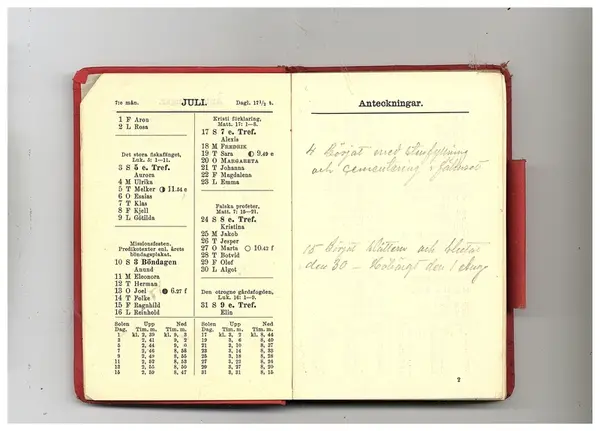 7:e mån. JULI. Dagl. 17½ t.
1 F Aron
2 L Rosa
Det stora fiskafänget,
Luk. 5: 1—11.
3 S 5 e. Tref.
Aurora
4 M Ulrika
5 T Melker 11.54 e
6 O Esaias
7 T Klas
8 F Kjell
9 L Götilda
Missionsfesten,
Predikotexter enl. årets
böndagsplakat.
10 S 3 Böndagen
Anund
11 M Eleonora
12 T Herman
13 O Joel 6.27 f
14 T Folke
15 F Ragnhild
16 L Reinhold
Kristi förklaring,
Matt. 17: 1—8.
17 S 7 e. Tref.
Alexis
18 M FREDRIK
19 T Sara 9.49 e
20 O MARGARETA
21 T Johanna
22 F Magdalena
23 L Emma
Falska profeter,
Matt. 7: 15—21.
24 S 8 e. Tref.
Kristina
25 M Jakob
26 T Jesper
27 O Marta 10.42 f
28 T Botvid
29 F Olof
30 L Algot
Den otrogne gårdsfogden,
Luk. 16: 1—9.
31 S 9 e. Tref.
Elin
Solen Upp Ned
Dag. Tim. m. Tim. m.
1 kl. 2, 39 kl. 9, 3
3 2, 41 9, 2
5 2, 44 9, 0
7 2, 46 8, 58
9 2, 49 8, 55
11 2, 52 8, 53
13 2, 55 8, 50
15 2, 59 8, 47
Solen Upp Ned
Dag. Tim. m. Tim. m.
17 kl. 3, 2 kl. 8, 44
19 3, 6 8, 40
21 3, 10 8, 37
23 3, 14 8, 33
25 3, 18 8, 28
27 3, 22 8, 24
29 3, 27 8, 20
31 3, 31 8, 15
Anteckningar.
4 Börjat med
och cementering i
15 Börjat slåttern och slutat
den 30 — den 1 Aug
7